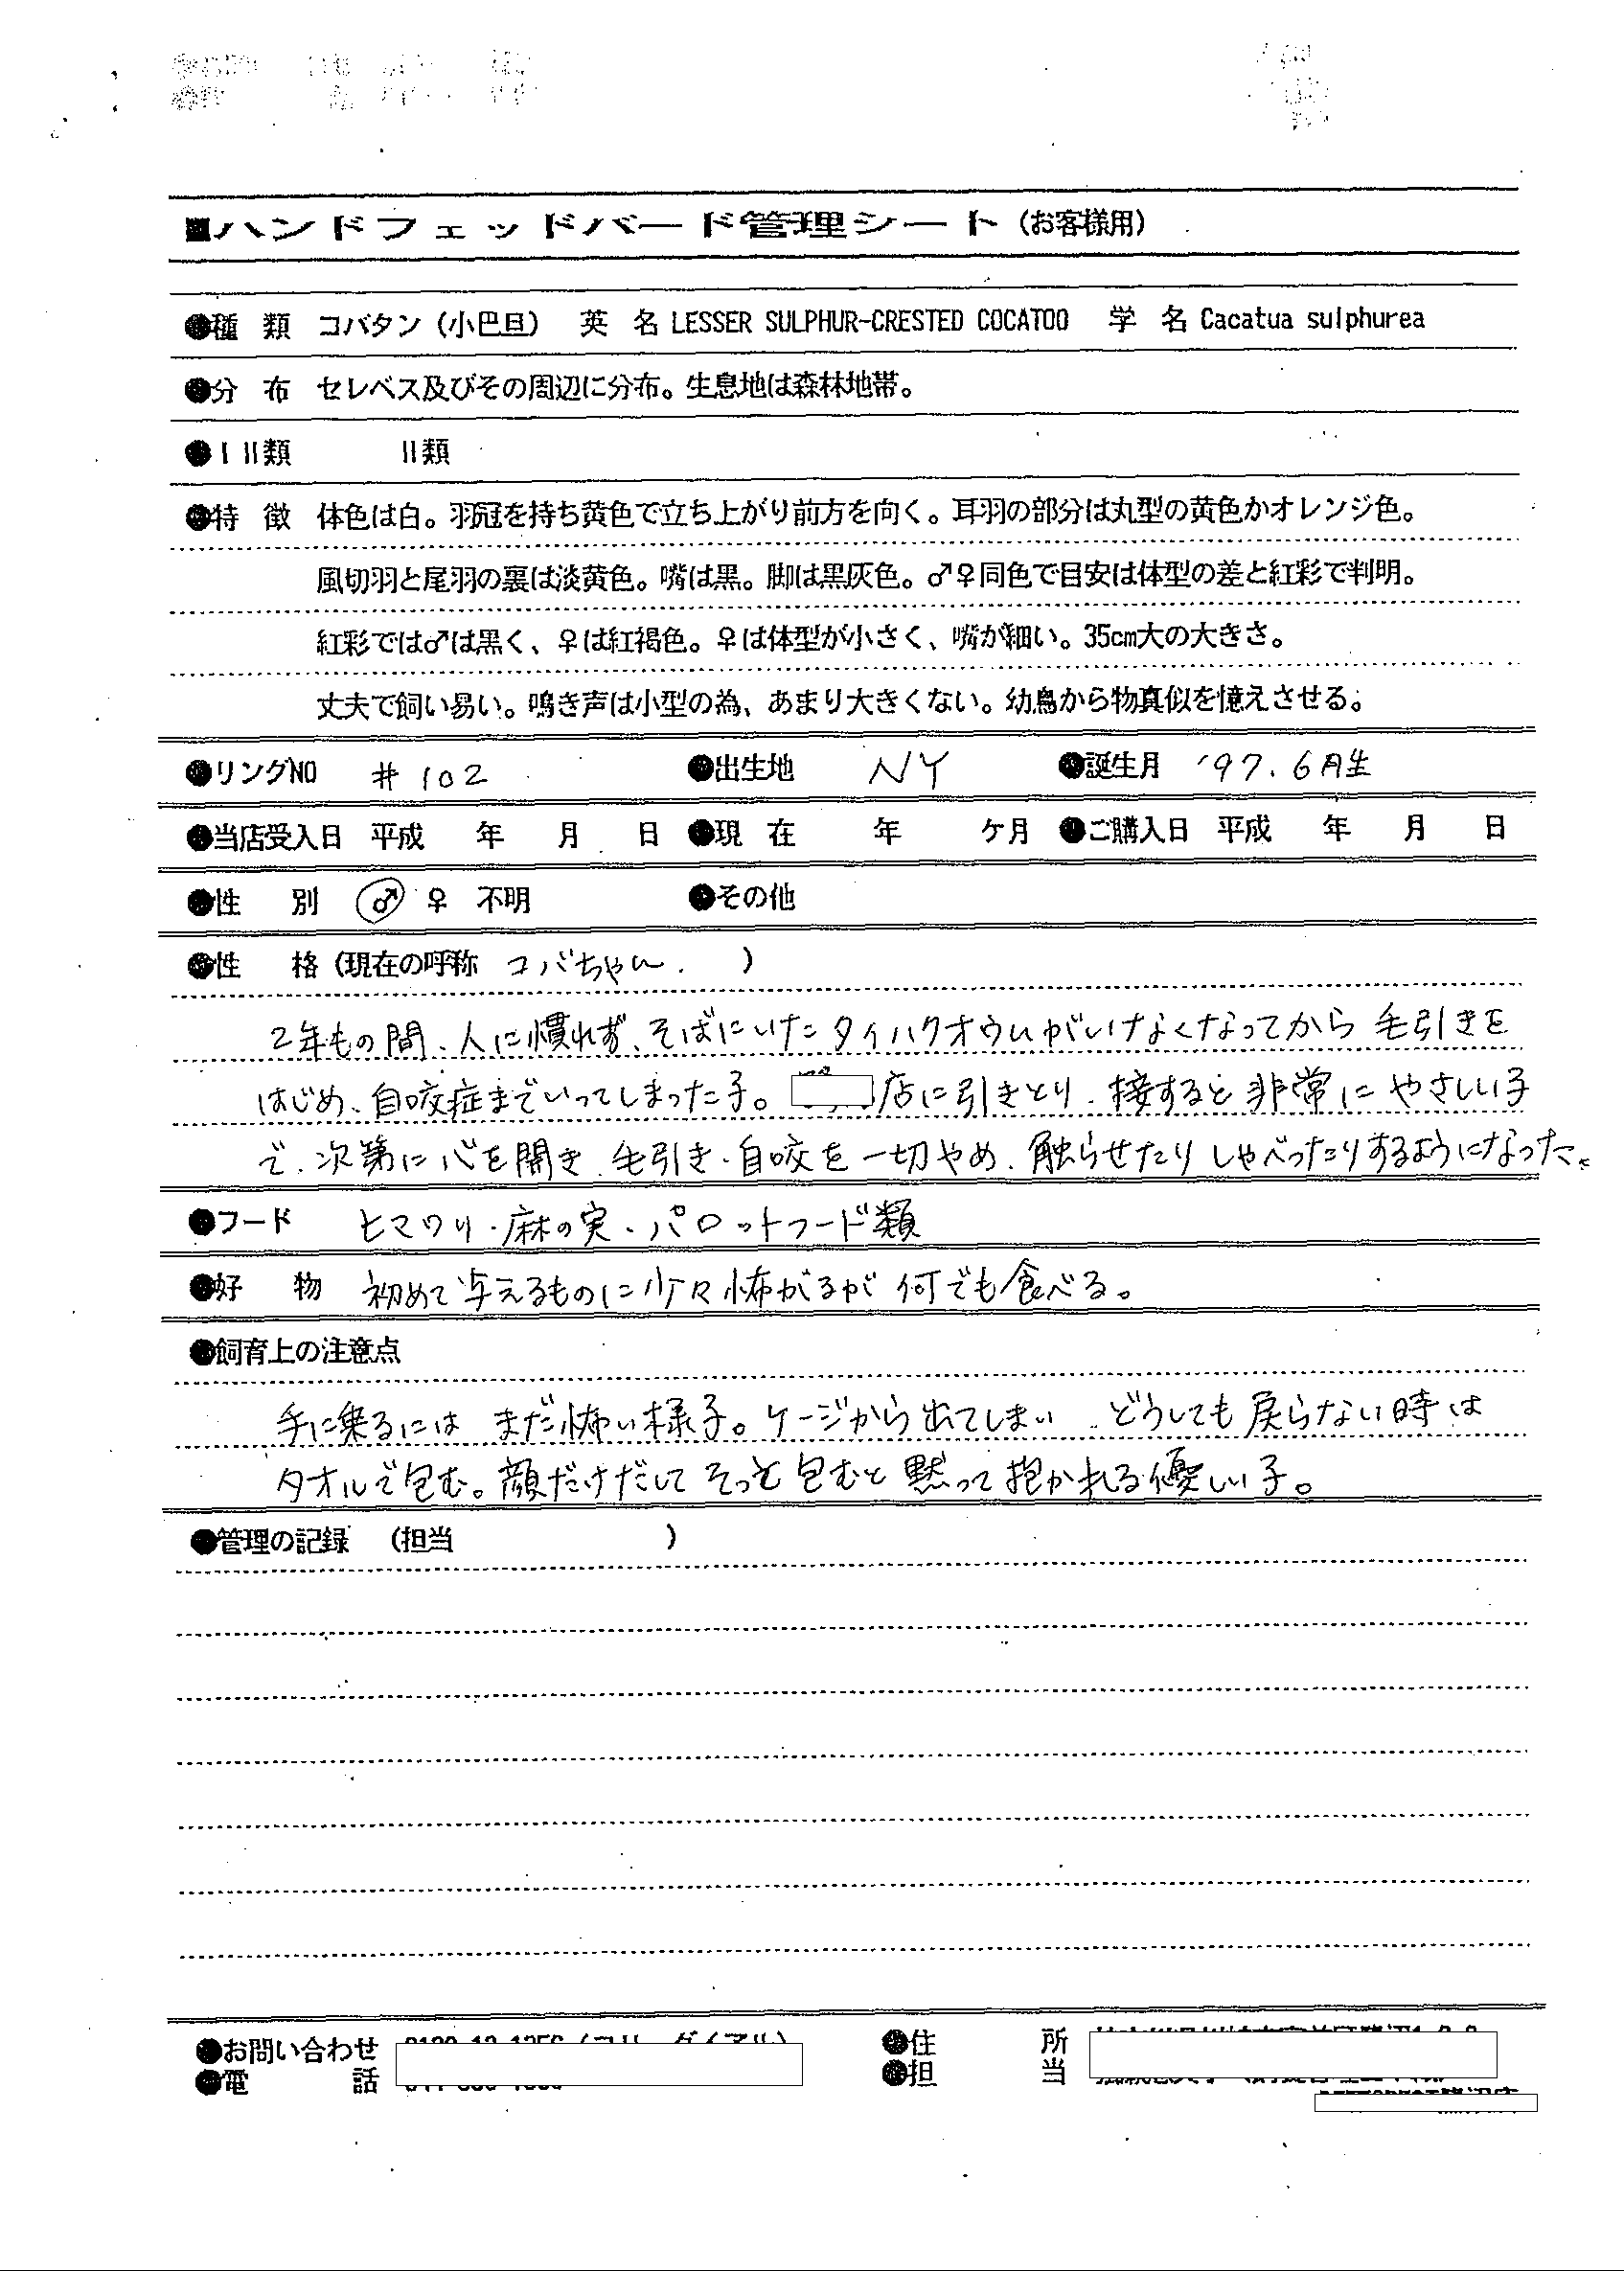 ■ハンドフェッドバード管理シート（お客様用）
●種　類　コバタン（小巴旦）　英　名 LESSER SULPHUR-CRESTED COCATOO　学　名 Cacatua sulphurea
●分　布　セレベス及びその周辺に分布。生息地は森林地帯。
●ⅠⅡ類　Ⅱ類
●特　徴　体色は白。羽冠を持ち黄色で立ち上がり前方を向く。耳羽の部分は丸型の黄色かオレンジ色。
風切羽と尾羽の裏は淡黄色。嘴は黒。脚は黒灰色。♂♀同色で目安は体型の差と紅彩で判明。
紅彩では♂は黒く、♀は紅褐色。♀は体型が小さく、嘴が細い。35cm大の大きさ。
丈夫で飼い易い。鳴き声は小型の為、あまり大きくない。幼鳥から物真似を憶えさせる。
●リングNO　＃102　●出生地　NY　●誕生月　'97.6月生
●当店受入日　平成　年　月　日　●現　在　年　ケ月　●ご購入日　平成　年　月　日
●性　別　♂　♀　不明　●その他
●性　格（現在の呼称　コバちゃん.　）
2年もの間、人に慣れず、そばにいたタイハクオウムがいなくなってから毛引きを
はじめ、自咬症までいってしまった子。店に引きとり、接すると非常にやさしい子
で、次第に心を開き、毛引き・自咬を一切やめ、触らせたりしゃべったりするようになった。
●フード　ヒマワリ・麻の実・パロットフード類
●好　物　初めて与えるものに少々怖がるが何でも食べる。
●飼育上の注意点
手に乗るには まだ怖い様子。ケージから出てしまい、どうしても戻らない時は
タオルで包む。顔だけだして そっと包むと 黙って抱かれる優しい子。
●管理の記録　（担当　）
●お問い合わせ　●住　所
●電　話　●担　当